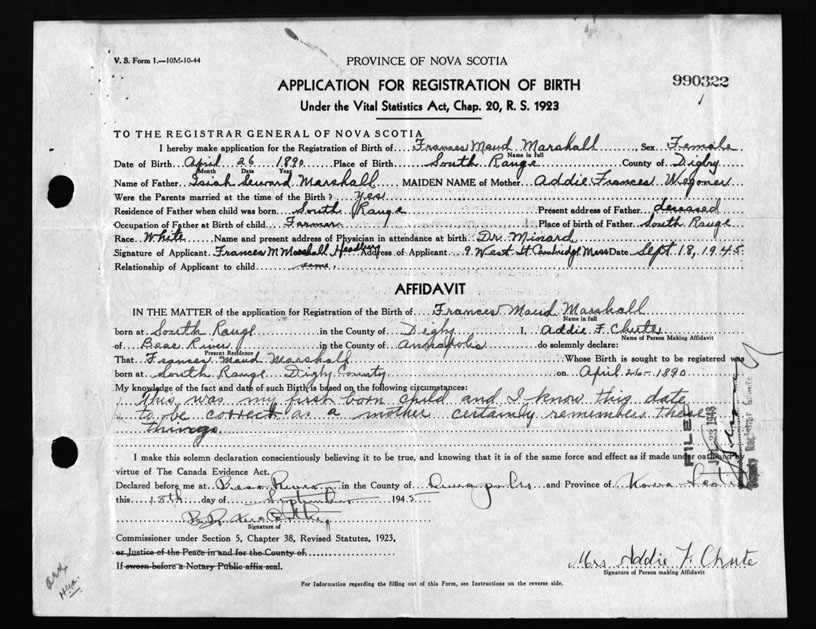 V. S. Form 1.—10M-10-44
PROVINCE OF NOVA SCOTIA
990322
APPLICATION FOR REGISTRATION OF BIRTH
Under the Vital Statistics Act, Chap. 20, R. S. 1923
TO THE REGISTRAR GENERAL OF NOVA SCOTIA
I hereby make application for the Registration of Birth of Frances Maud Marshall Sex Female
Name in full
Date of Birth April 26 1890 Place of Birth South Range County of Digby
Month Date Year
Name of Father Isiah Seward Marshall MAIDEN NAME of Mother Addie Frances Wagoner
Were the Parents married at the time of the Birth? Yes
Residence of Father when child was born South Range Present address of Father deceased
Occupation of Father at Birth of child Farmer Place of birth of Father South Range
Race White Name and present address of Physician in attendance at birth Dr. Minard
Signature of Applicant Frances M Marshall Headley Address of Applicant 9 West St Cambridge Mass Date Sept 18, 1945
Relationship of Applicant to child same
AFFIDAVIT
IN THE MATTER of the application for Registration of the Birth of Frances Maud Marshall
Name in full
born at South Range in the County of Digby I, Addie F. Chute
Name of Person Making Affidavit
of Bear River in the County of Annapolis do solemnly declare:
Present Residence
That Frances Maud Marshall Whose Birth is sought to be registered was
born at South Range Digby County on April 26-1890
My knowledge of the fact and date of such Birth is based on the following circumstances:
This was my first born child and I know this date
to be correct as a mother certainly remembers those
things.
FILED
23 1948
I make this solemn declaration conscientiously believing it to be true, and knowing that it is of the same force and effect as if made under oath and by
virtue of The Canada Evidence Act.
Declared before me at Bear River in the County of Annapolis and Province of Nova Scotia
this 18th day of September 1945
Signature of
Commissioner under Section 5, Chapter 38, Revised Statutes, 1923,
or Justice of the Peace in and for the County of
If sworn before a Notary Public affix seal.
Mrs Addie F. Chute
Signature of Person making Affidavit
For Information regarding the filling out of this Form, see Instructions on the reverse side.